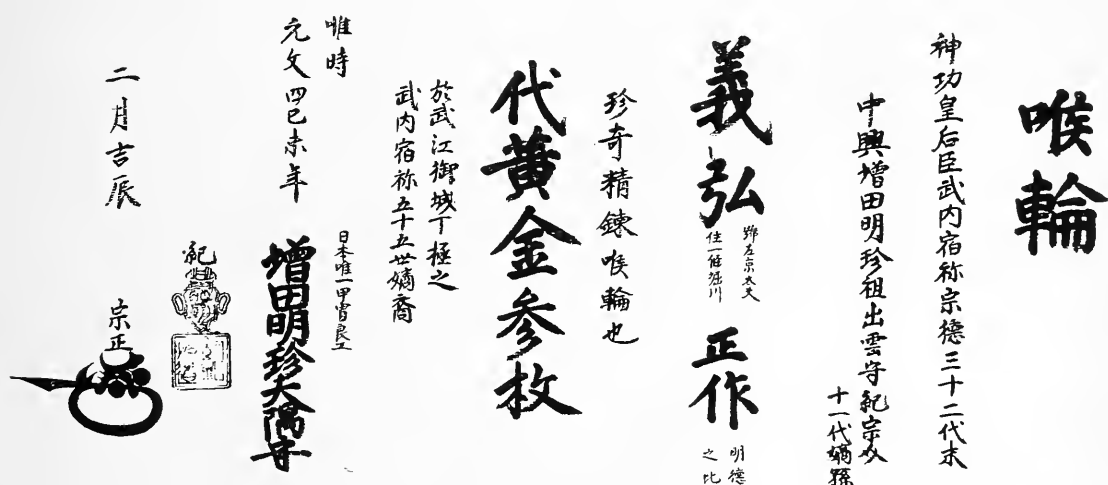 喉輪
神功皇后臣武内宿祢宗德三十二代末
中興増田明珍祖出雲守紀宗
十一代嫡孫
義弘
左京太夫
住一條堀川
正作
明德
之比
珍奇精錬喉輪也
代黄金参枚
於武江御城下極之
武内宿祢五十五世嫡裔
唯時
元文四己未年
日本唯一甲冑良工
増田明珍大隅守
紀
二月吉辰
宗正